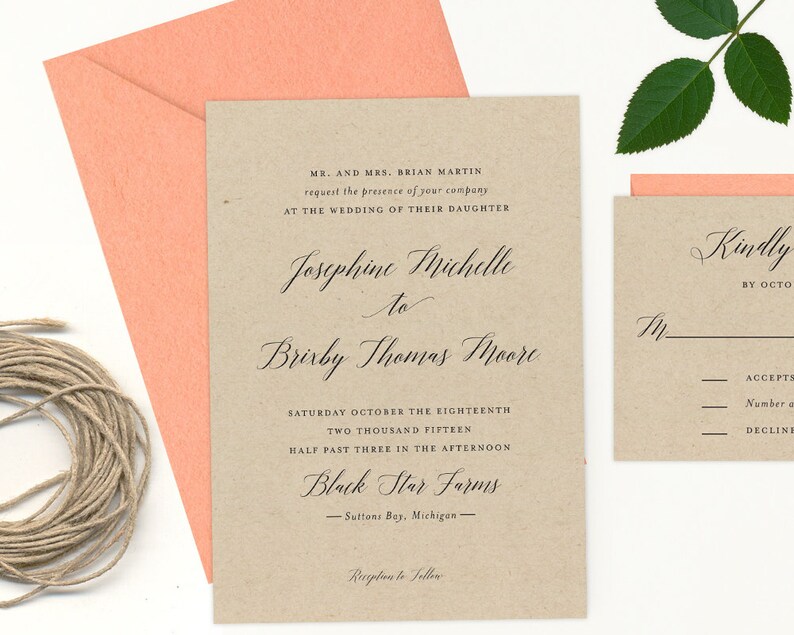 MR. AND MRS. BRIAN MARTIN
request the presence of your company
AT THE WEDDING OF THEIR DAUGHTER
Josephine Michelle
to
Brixby Thomas Moore
SATURDAY OCTOBER THE EIGHTEENTH
TWO THOUSAND FIFTEEN
HALF PAST THREE IN THE AFTERNOON
Black Star Farms
Suttons Bay, Michigan
Reception to Follow
Kindly
BY OCTO
M
ACCEPTS
Number a
DECLINE